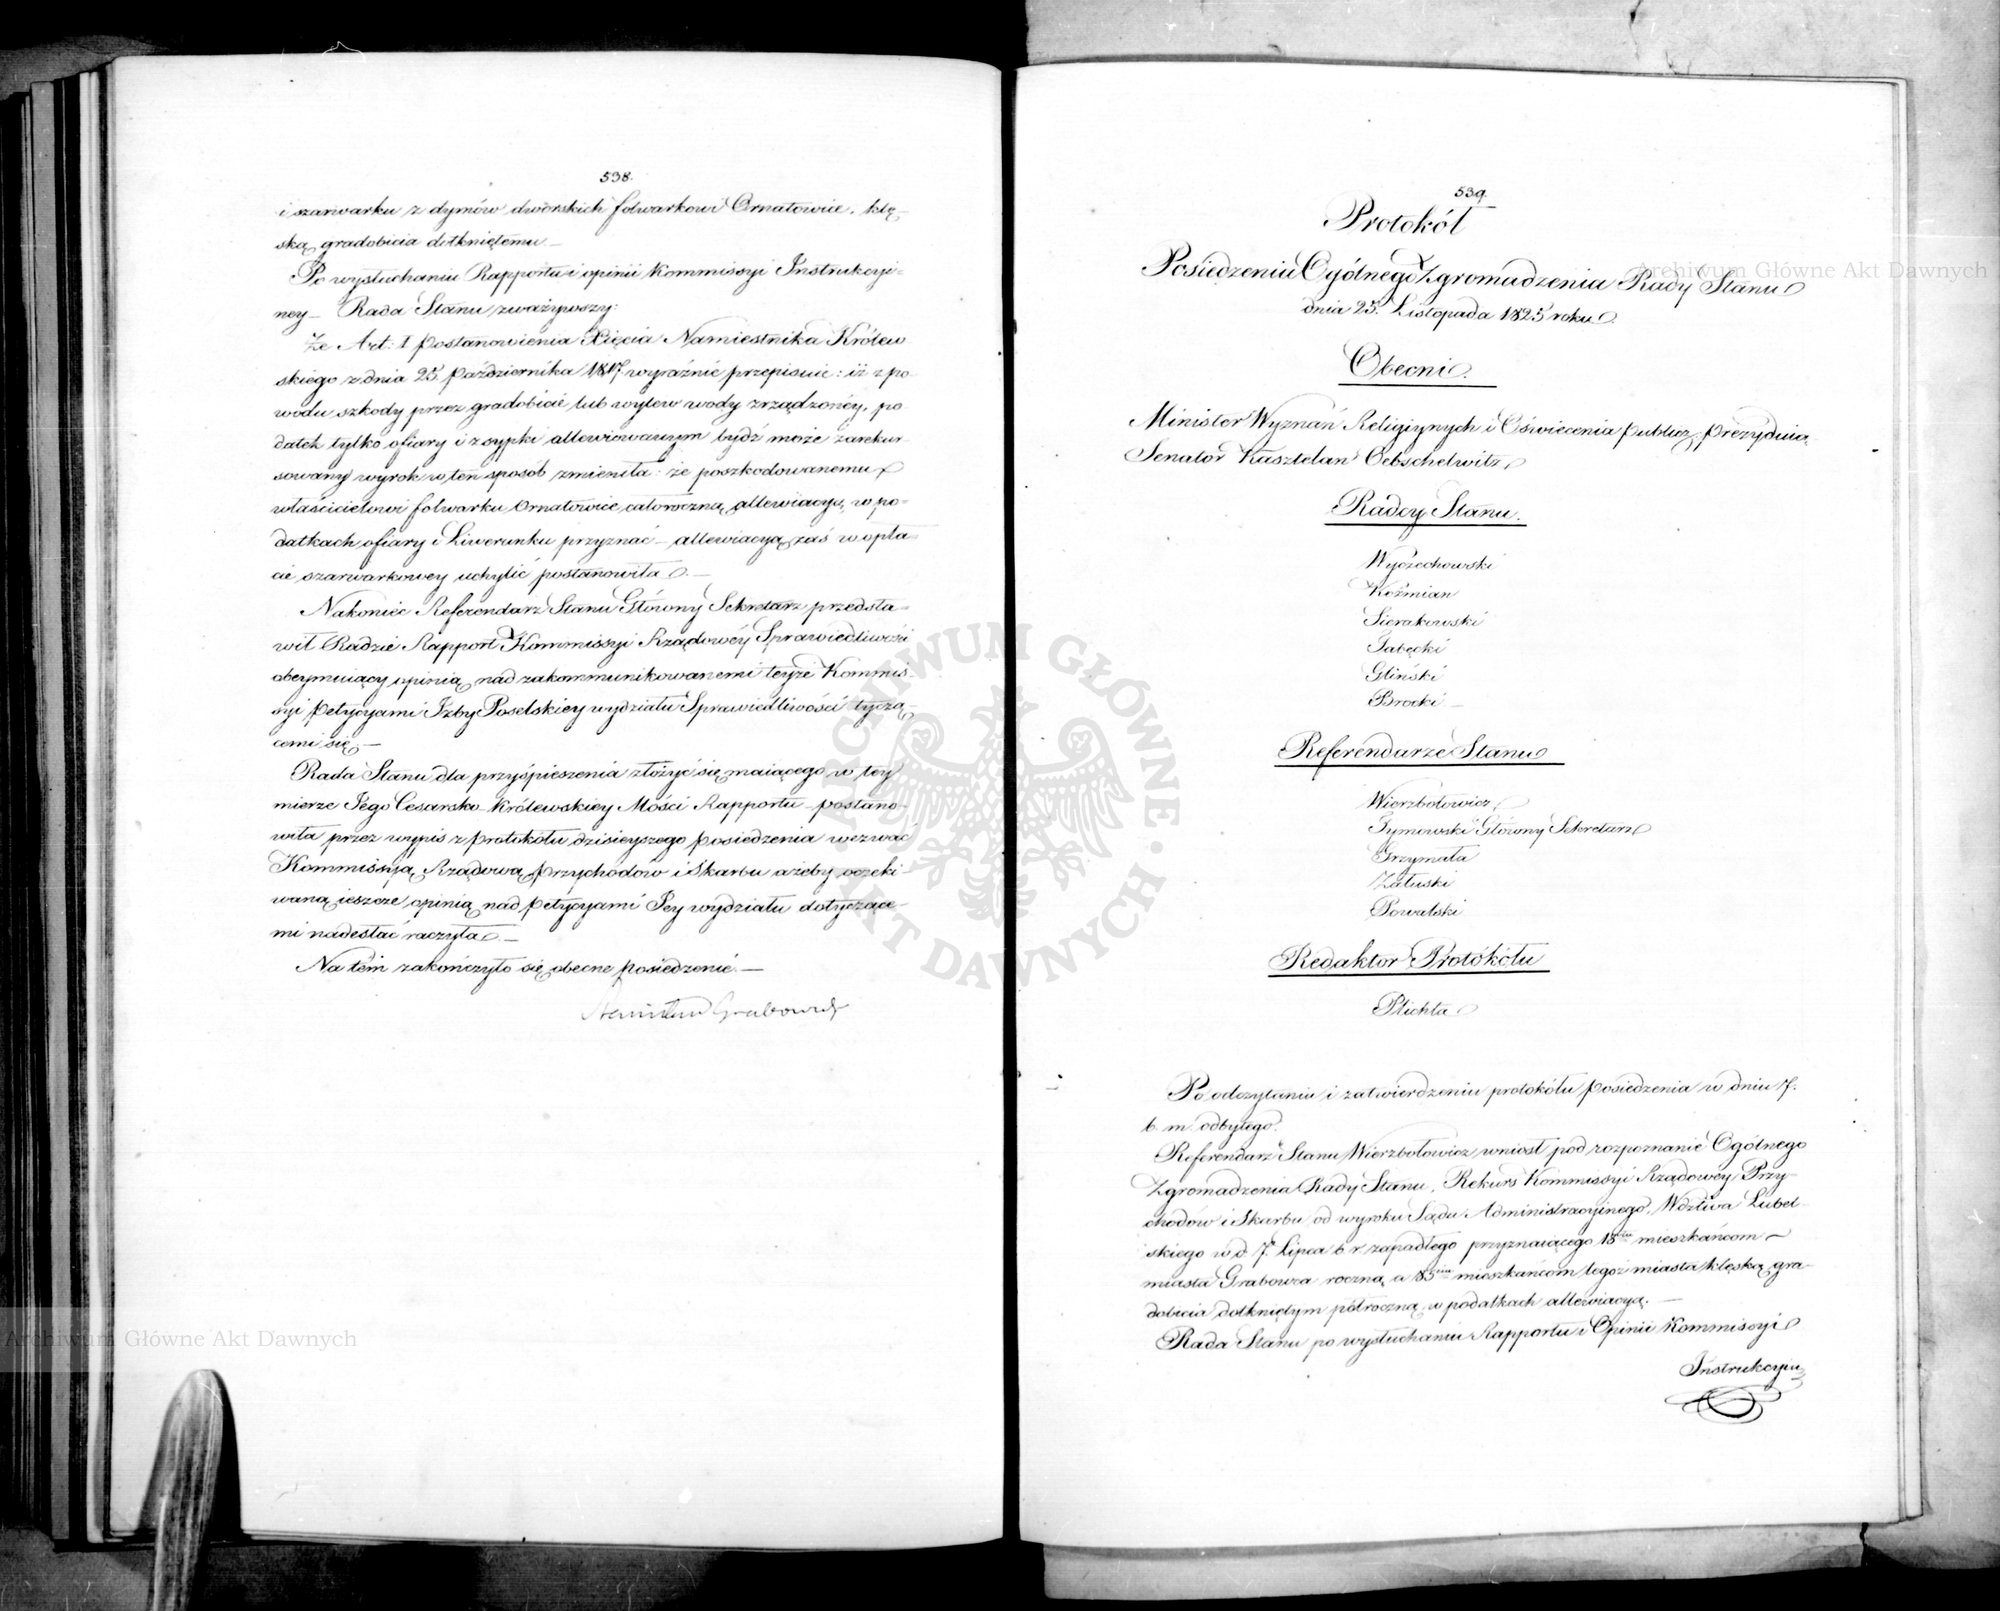 538.
i szarwarku z dymów dworskich folwarkowi Ornatowice, klę-
ską gradobicia dotkniętemu —
Po wysłuchaniu Rapportu i opinii Kommissyi Instrukcyi-
ney — Rada Stanu zważywszy:
Że Art: I postanowienia Xięcia Namiestnika Królew-
skiego z dnia 25. Października 1817. wyraźnie przepisuie: iż z po-
wodu szkody przez gradobicie lub wylew wody zrządzoney, po-
datek tylko ofiary i zsypki allewiowanym bydź może zarekur-
sowany wyrok w ten sposób zmieniła: że poszkodowanemu
właścicielowi folwarku Ornatowice całoroczną allewiacyą w po-
datkach ofiary i Liwerunku przyznać — allewiacyą zaś w opła-
cie szarwarkowey uchylić postanowiła. —
Nakoniec Referendarz Stanu Główny Sekretarz przedsta-
wił Radzie Rapport Kommissyi Rządowey Sprawiedliwości
obeymuiący opinią nad zakommunikowanemi teyże Kommis-
syi petycyami Izby Poselskiey wydziału Sprawiedliwości tyczą-
cemi się. —
Rada Stanu dla przyśpieszenia złożyć się maiącego w tey
mierze Jego Cesarsko-Królewskiey Mości Rapportu — postano-
wiła przez wypis z protokółu dzisieyszego posiedzenia wezwać
Kommissyą Rządową Przychodów i Skarbu ażeby oczeki-
waną ieszcze opinią nad petycyami Jey wydziału dotyczące-
mi nadesłać raczyła. —
Na tém zakończyło się obecne posiedzenie. —
Stanisław Grabowski
539.
Protokół
Posiedzeniu Ogólnego Zgromadzenia Rady Stanu
dnia 25. Listopada 1825 roku.
Obecni.
Minister Wyznań Religiynych i Oświecenia publicz. prezyduią.
Senator Kasztelan Oebschelwitz
Radcy Stanu.
Wyczechowski
Koźmian
Sierakowski
Gliński
Brocki —
Referendarze Stanu
Wierzbołowicz
Tymowski Główny Sekretarz
Grzymała
Załuski
Powalski
Redaktor Protokółu
Plichta
Po odczytaniu i zatwierdzeniu protokółu posiedzenia w dniu 7.
b. m. odbytego.
Referendarz Stanu Wierzbołowicz wniosł pod rozpoznanie Ogólnego
Zgromadzenia Rady Stanu, Rekurs Kommissyi Rządowey Przy-
chodów i Skarbu od wyroku Sądu Administracyinego Wdztwa Lubel-
skiego w d. 7. Lipca b. r. zapadłego przyznaiącego mieszkańcom
miasta Grabowca roczną a mieszkańcom tegoż miasta klęską gra-
dobicia dotkniętym półroczną w podatkach allewiacyą. —
Rada Stanu po wysłuchaniu Rapportu i Opinii Kommissyi
Instrukcyin
Archiwum Główne Akt Dawnych
Archiwum Główne Akt Dawnych
ARCHIWUM GŁÓWNE AKT DAWNYCH